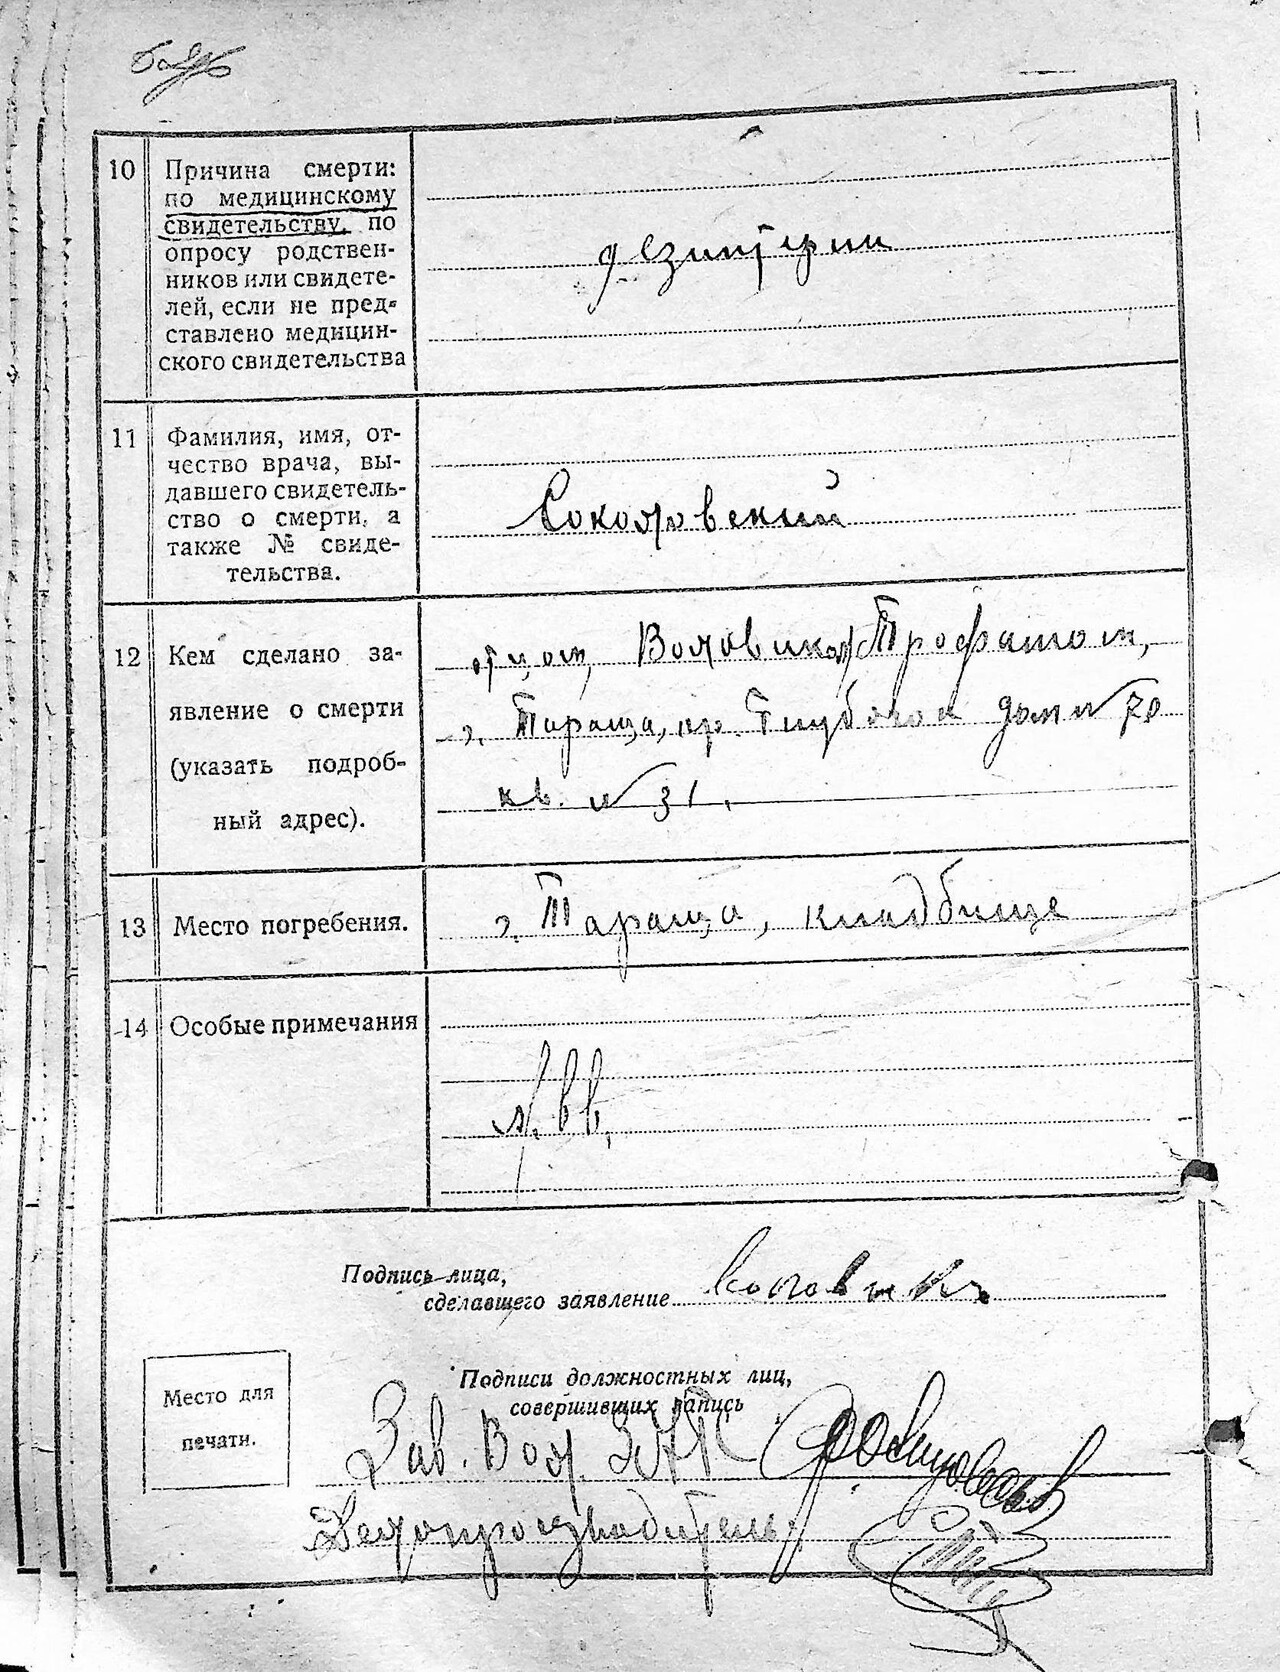 10 Причина смерти:
по медицинскому
свидетельству, по
опросу родствен-
ников или свидете-
лей, если не пред-
ставлено медицин-
ского свидетельства
дезинтерии
11 Фамилия, имя, от-
чество врача, вы-
давшего свидетель-
ство о смерти, а
также № свиде-
тельства.
Соколовский
12 Кем сделано за-
явление о смерти
(указать подроб-
ный адрес).
отцом, Воловиком Трофимом,
г. Тараща, пр. дом № 70
кв. № 31.
13 Место погребения.
г. Тараща, кладбище
14 Особые примечания
Подпись лица,
сделавшего заявление
Место для
печати.
Подписи должностных лиц,
совершивших запись
Зав. Вол. ЗАГС
Делопроизводитель